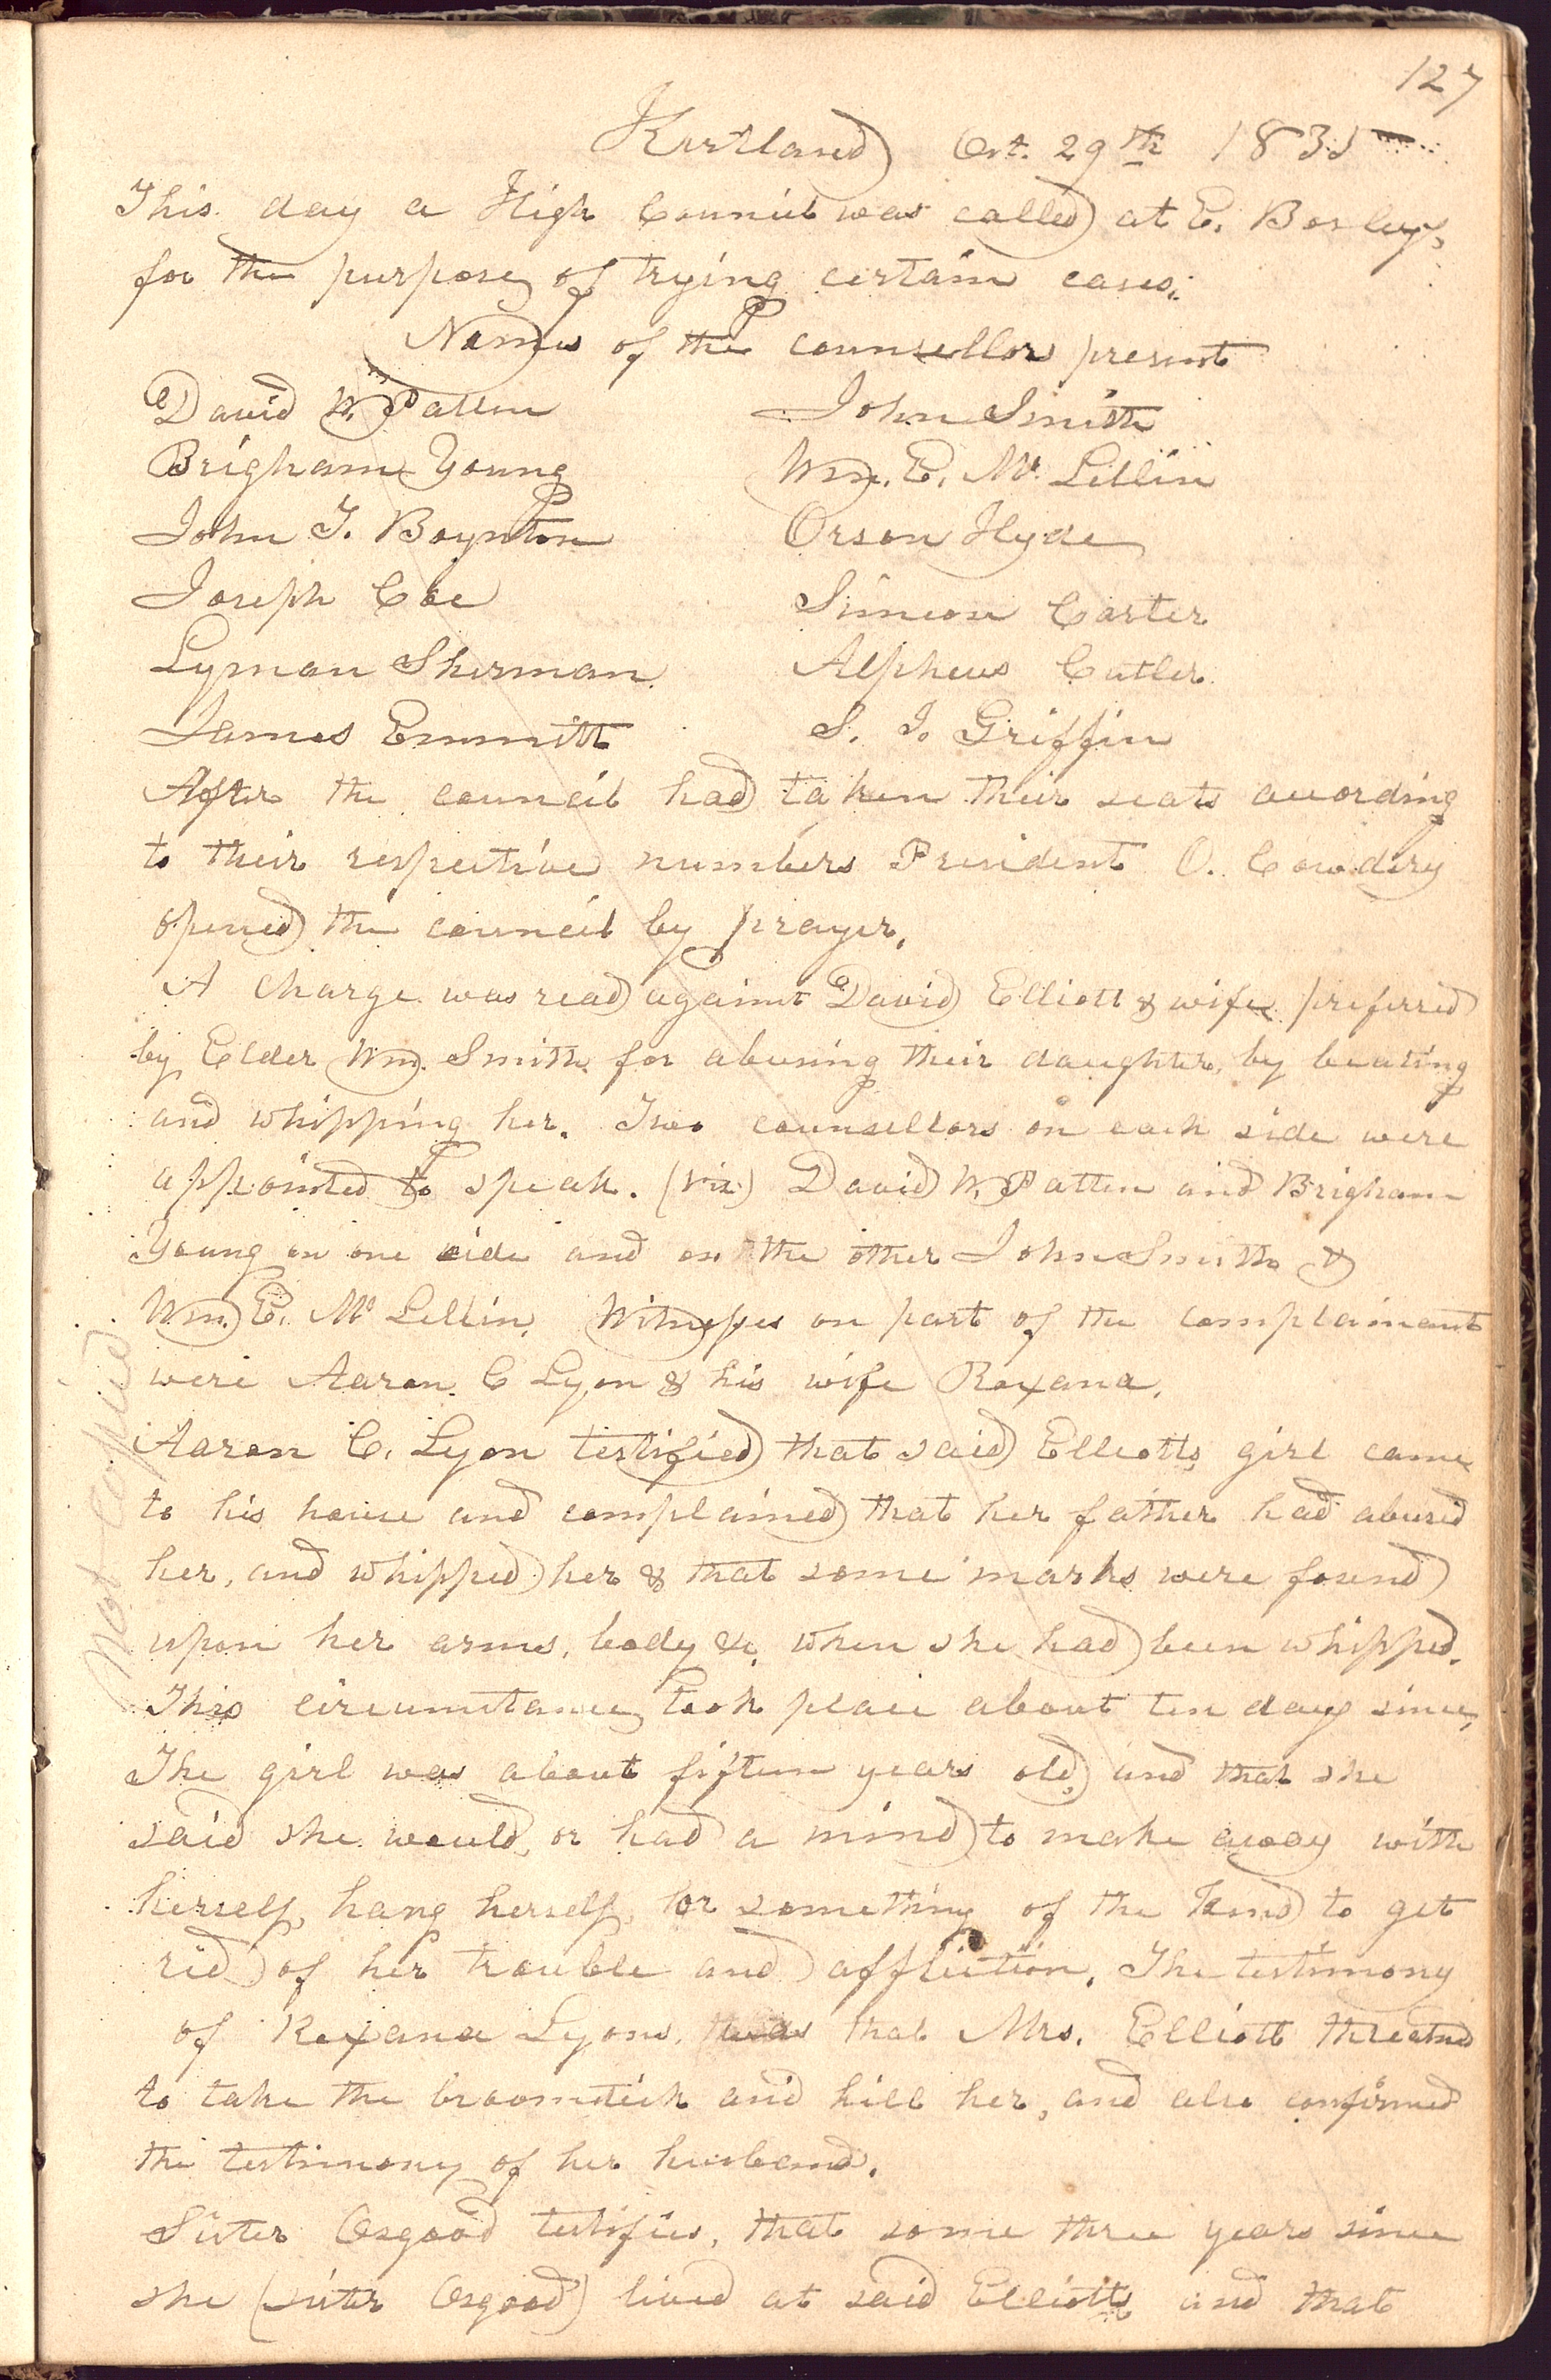 127
Kirtland Oct. 29th 1835
This day a High Council was called at E. Bosley's
for the purpose of trying certain cases.
Names of the counsellors present
David W. Patten
Brigham Young
John F. Boynton
Joseph Coe
Lyman Sherman
James Emmitt
John Smith
Wm. E. Mc Lellin
Orson Hyde
Simeon Carter
Alpheus Cutler
S. J. Griffin
After the council had taken their seats according
to their respective numbers President O. Cowdery
opened the council by prayer.
A charge was read against David Elliott & wife preferred
by Elder Wm. Smith for abusing their daughter, by beating
and whipping her. Two counsellors on each side were
appointed to speak. (viz) David W. Patten and Brigham
Young on one side and on the other John Smith &
Wm. E. Mc Lellin. Witnesses on part of the complainant
were Aaron C Lyon & his wife Roxana.
Aaron C. Lyon testified that said Elliotts girl came
to his house and complained that her father had abused
her, and whipped her & that some marks were found
upon her arms, body &c. when she had been whipped.
This circumstance took place about ten days since,
The girl was about fifteen years old, and that she
said she would, or had a mind to make away with
herself, hang herself, or something of the kind to get
rid of her trouble and affliction. The testimony
of Roxana Lyons, was that Mrs. Elliott threatned
to take the broomstick and kill her, and also confirmed
the testimony of her husband.
Sister Osgood testifies, that some three years since
she (sister Osgood) lived at said Elliotts and that
Not copied